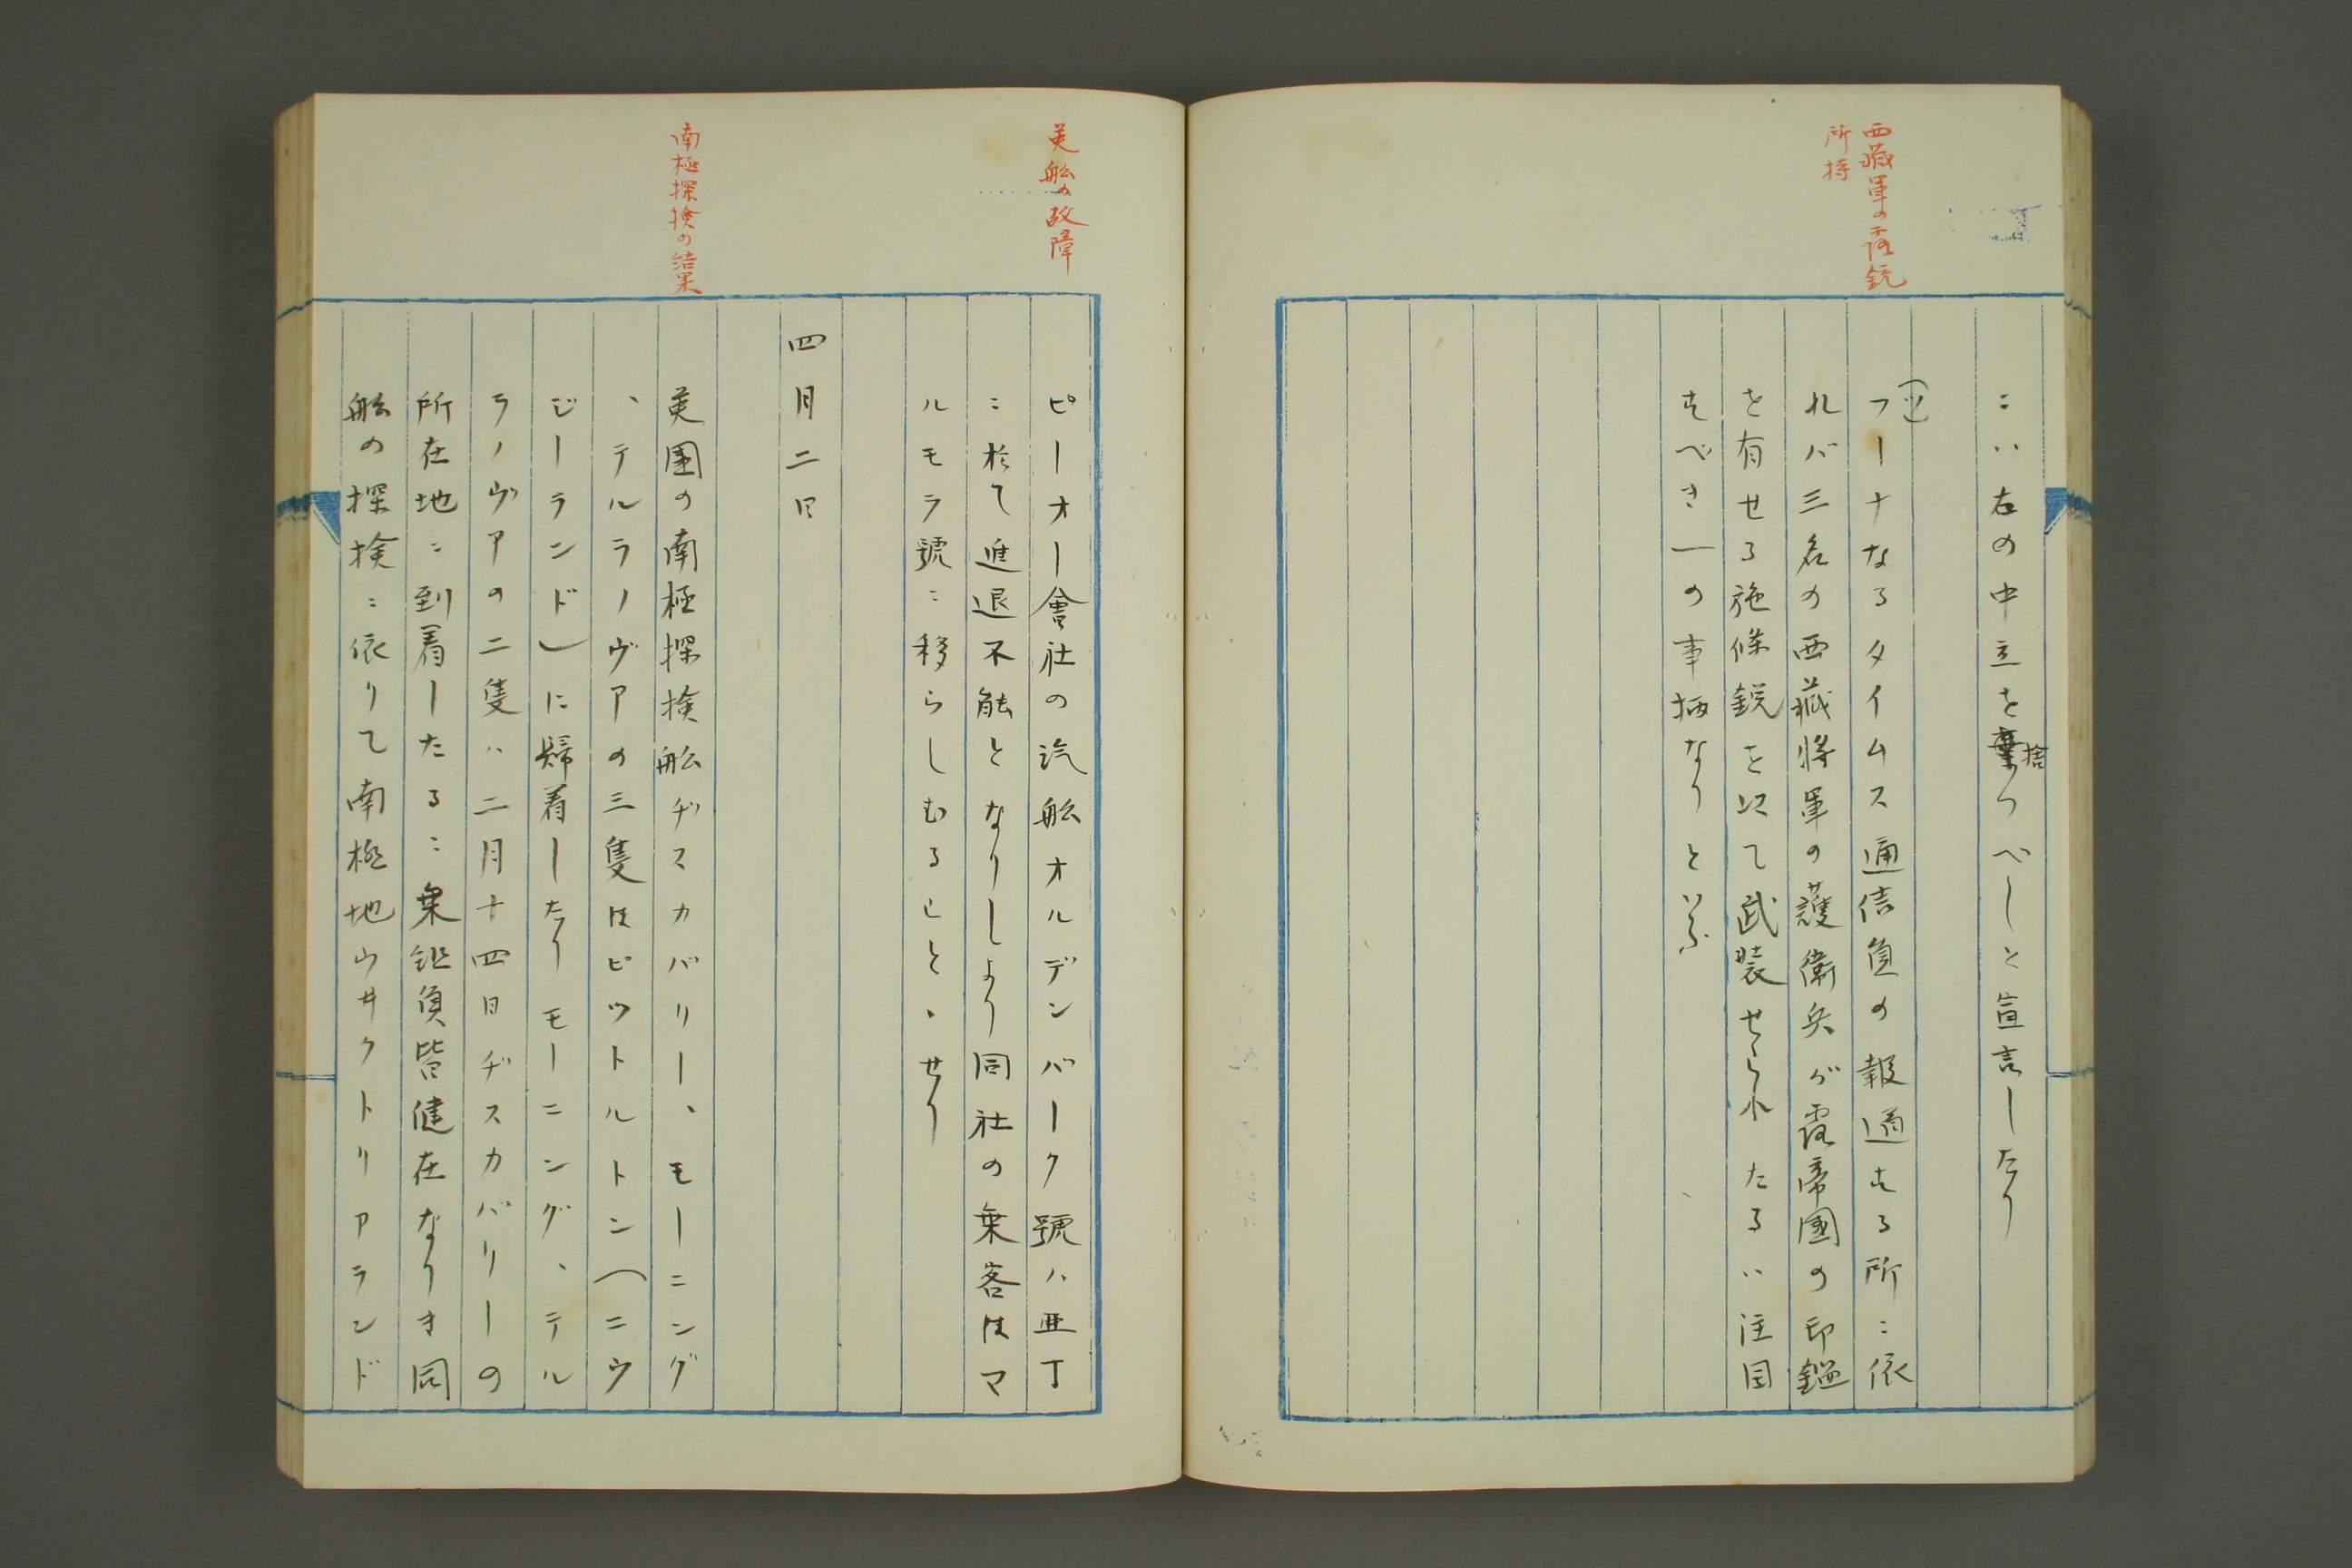 ニハ右の中立を捨つべしと宣言したり
西藏軍の露銃
所持
フーナなるタイムス通信員の報道する所ニ依
れバ三名の西藏将軍の護衛兵が露帝國の印鑑
を有せる施條銃を以て武装せられたるハ注目
すべき一の事柄なりといふ
英船の故障
ピーオー會社の汽船オルデンバーク號ハ亜丁
ニ於て進退不能となりしより同社の乗客はマ
ルモラ號ニ移らしむることゝせり
四月二日
南極探検の結果
英国の南極探検船ヂスカバリー、モーニング
、テルラノヴアの三隻はピツトルトン(ニウ
ジーランド)に歸着したりモーニング、テル
ラノヴアの二隻ハ二月十四日ヂスカバリーの
所在地ニ到着したるニ乗組員皆健在なりき同
船の探検ニ依りて南極地ウ井クトリアランド